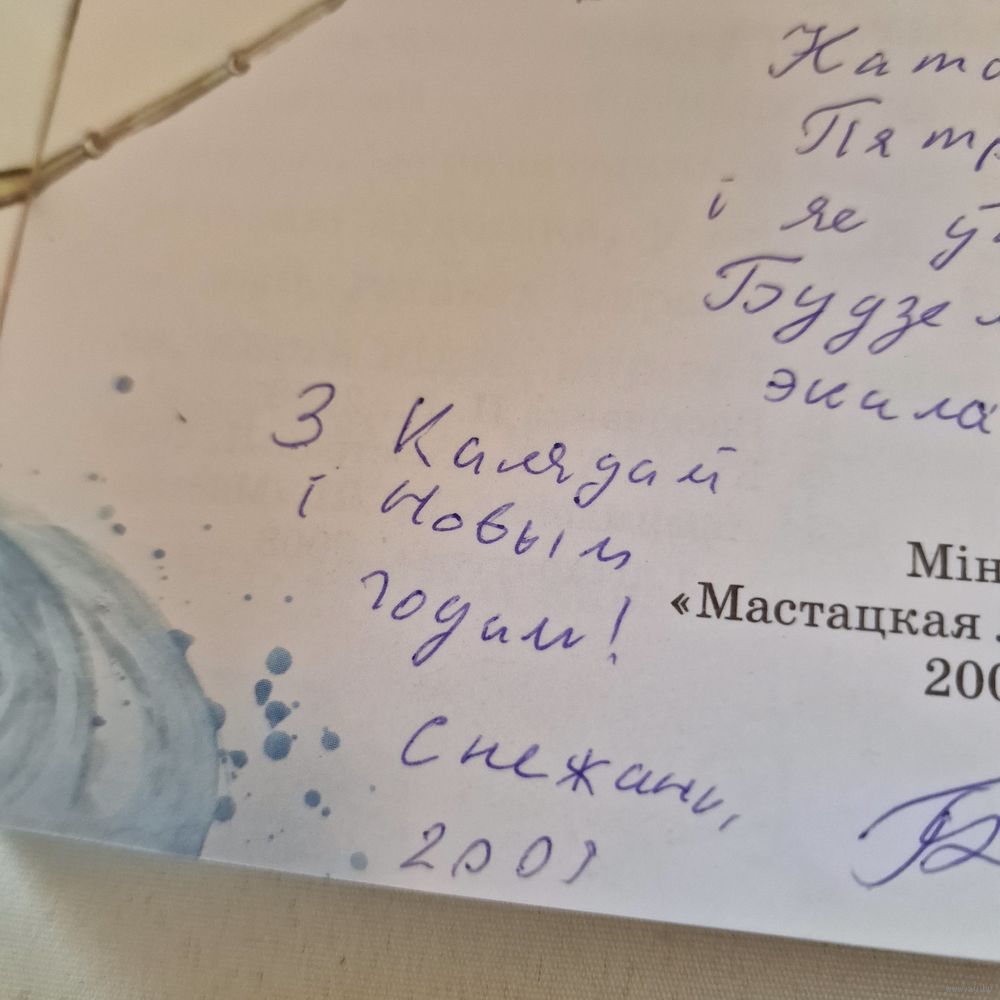 Ката
Пятр
і яе ў
Будзем
экила
З Калядай
і Новым
годам!
Снежань,
2009
Мін
«Мастацкая
200